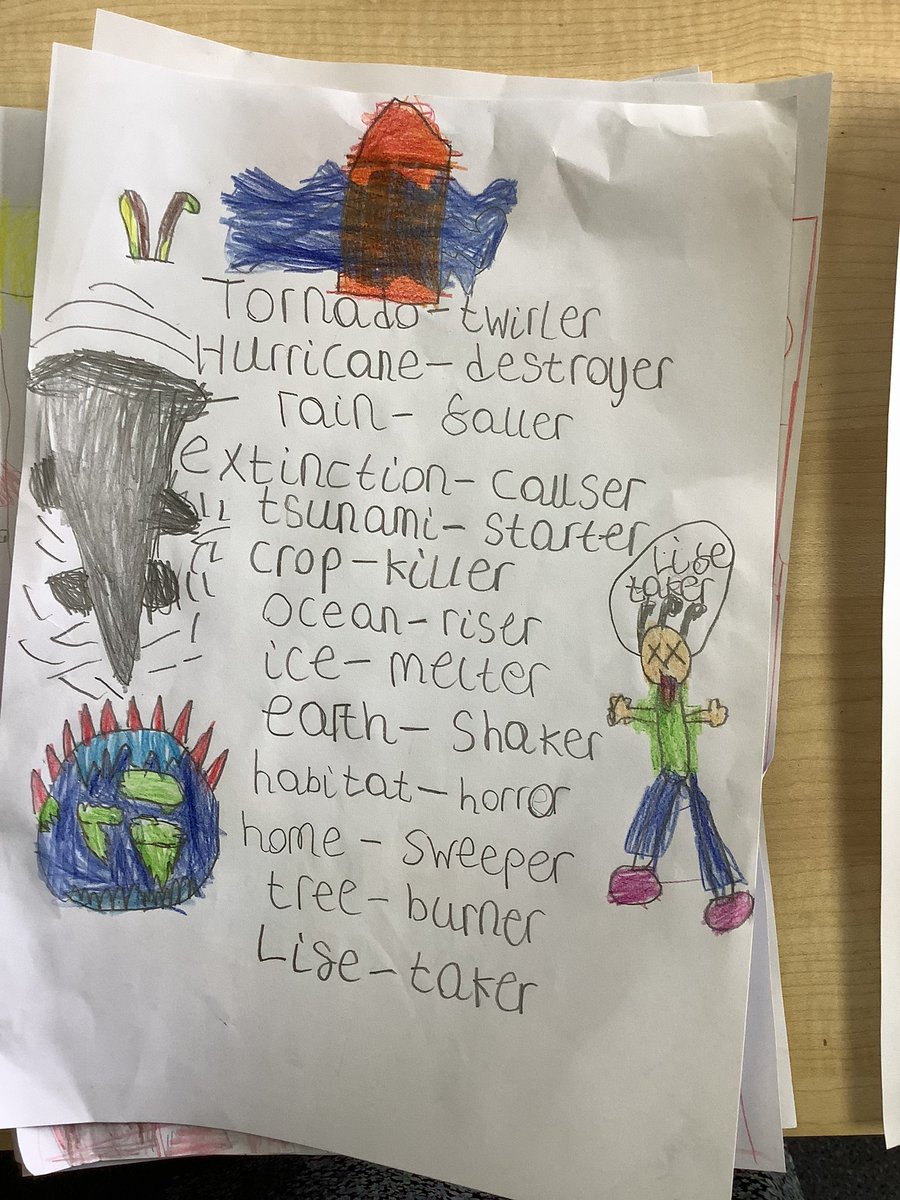 Tornado-twirler
Hurricane-destroyer
rain-faller
extinction-causer
tsunami-starter
crop-killer
ocean-riser
ice-melter
earth-shaker
habitat-horror
home-sweeper
tree-burner
Life-taker
Life
taker